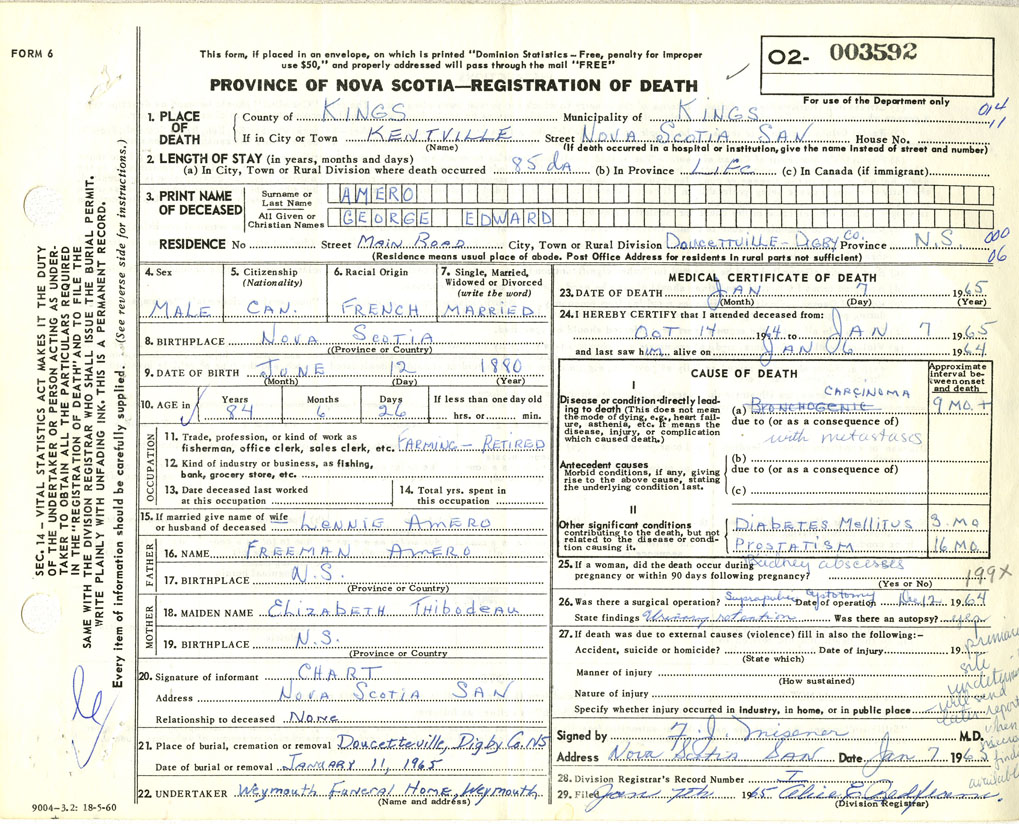 FORM 6
This form, if placed in an envelope, on which is printed "Dominion Statistics – Free, penalty for improper
use $50," and properly addressed will pass through the mail "FREE"
O2- 003592
PROVINCE OF NOVA SCOTIA—REGISTRATION OF DEATH
For use of the Department only
1. PLACE OF DEATH
County of KINGS Municipality of KINGS
014
11
If in City or Town KENTVILLE Street NOVA SCOTIA SAN House No.
(Name) (If death occurred in a hospital or institution, give the name instead of street and number)
2. LENGTH OF STAY (in years, months and days)
(a) In City, Town or Rural Division where death occurred 85 da (b) In Province LIFE (c) In Canada (if immigrant)
3. PRINT NAME OF DECEASED
Surname or Last Name AMERO
All Given or Christian Names GEORGE EDWARD
RESIDENCE No Street MAIN ROAD City, Town or Rural Division DOUCETTVILLE – DIGBY CO. Province N.S.
000
06
(Residence means usual place of abode. Post Office Address for residents in rural parts not sufficient)
4. Sex
MALE
5. Citizenship
(Nationality)
CAN.
6. Racial Origin
FRENCH
7. Single, Married,
Widowed or Divorced
(write the word)
MARRIED
8. BIRTHPLACE NOVA SCOTIA
(Province or Country)
9. DATE OF BIRTH JUNE 12 1880
(Month) (Day) (Year)
10. AGE in
Years Months Days If less than one day old
84 6 26 hrs. or min.
OCCUPATION
11. Trade, profession, or kind of work as
fisherman, office clerk, sales clerk, etc. FARMING – RETIRED
12. Kind of industry or business, as fishing,
bank, grocery store, etc.
13. Date deceased last worked
at this occupation
14. Total yrs. spent in
this occupation
15. If married give name of wife
or husband of deceased LONNIE AMERO
FATHER
16. NAME FREEMAN AMERO
17. BIRTHPLACE N.S.
(Province or Country)
MOTHER
18. MAIDEN NAME ELIZABETH THIBODEAU
19. BIRTHPLACE N.S.
(Province or Country
20. Signature of informant CHART
Address NOVA SCOTIA SAN
Relationship to deceased NONE
21. Place of burial, cremation or removal Doucetteville, Digby Co. NS
Date of burial or removal JANUARY 11, 1965
22. UNDERTAKER Weymouth Funeral Home, Weymouth
(Name and address)
MEDICAL CERTIFICATE OF DEATH
23. DATE OF DEATH JAN 7 1965
(Month) (Day) (Year)
24. I HEREBY CERTIFY that I attended deceased from:
OCT 14 1964 to JAN 7 1965
and last saw him alive on JAN 6 1964
CAUSE OF DEATH
Approximate
interval be-
tween onset
and death
I
Disease or condition directly lead-
ing to death (This does not mean
the mode of dying, e.g., heart fail-
ure, asthenia, etc. It means the
disease, injury, or complication
which caused death.)
CARCINOMA
(a) BRONCHOGENIC 9 MO +
due to (or as a consequence of)
with metastases
Antecedent causes
Morbid conditions, if any, giving
rise to the above cause, stating
the underlying condition last.
(b)
due to (or as a consequence of)
(c)
II
Other significant conditions
contributing to the death, but not
related to the disease or condi-
tion causing it.
DIABETES MELLITUS 3 MO
PROSTATISM 16 MO.
Kidney abscesses
25. If a woman, did the death occur during
pregnancy or within 90 days following pregnancy?
(Yes or No)
199X
26. Was there a surgical operation? Suprapubic Cystotomy Date of operation Dec 12 1964
State findings Urinary retention Was there an autopsy? yes
27. If death was due to external causes (violence) fill in also the following:–
Accident, suicide or homicide? Date of injury 19
(State which)
Manner of injury
(How sustained)
Nature of injury
Specify whether injury occurred in industry, in home, or in public place
primary
site
undetermined
will send
later report
when
available
Signed by F. J. Misener M.D.
Address Nova Scotia SAN Date Jan 7 1965
28. Division Registrar's Record Number I
29. Filed Jan 7th 1965 Alice E.
(Division Registrar)
SEC. 14 – VITAL STATISTICS ACT MAKES IT THE DUTY
OF THE UNDERTAKER OR PERSON ACTING AS UNDER-
TAKER TO OBTAIN ALL THE PARTICULARS REQUIRED
IN THE "REGISTRATION OF DEATH" AND TO FILE THE
SAME WITH THE DIVISION REGISTRAR WHO SHALL ISSUE THE BURIAL PERMIT.
WRITE PLAINLY WITH UNFADING INK. THIS IS A PERMANENT RECORD.
Every item of information should be carefully supplied. (See reverse side for instructions.)
9004-3.2: 18-5-60